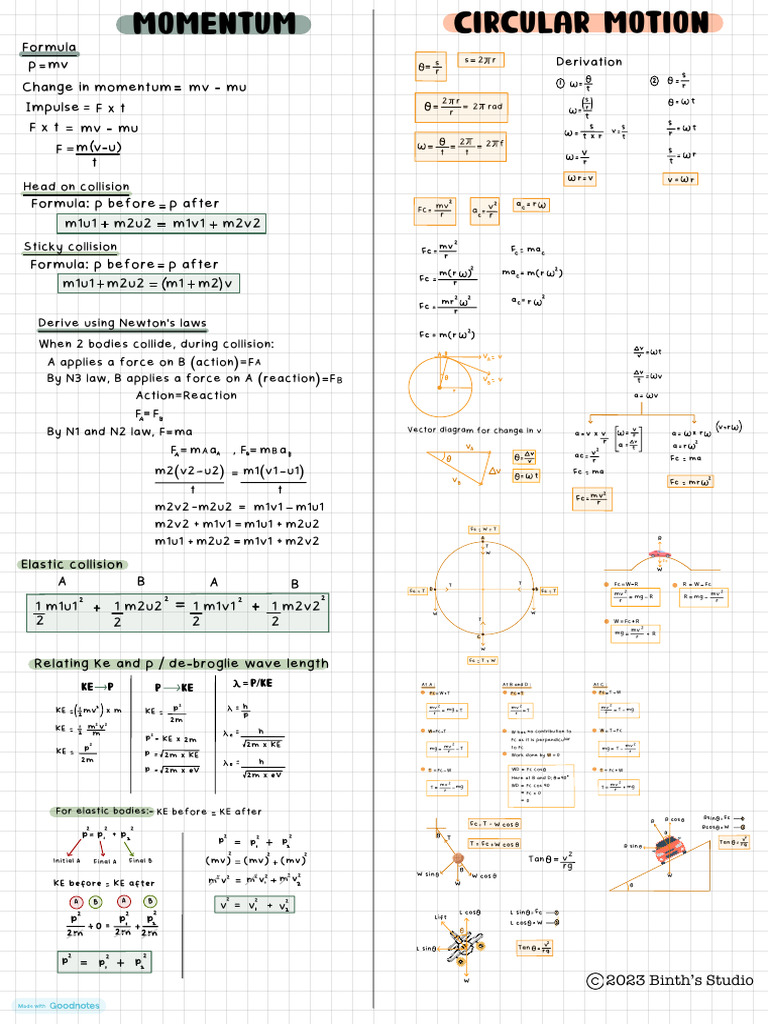 MOMENTUM
Formula
p = mv
Change in momentum = mv - mu
Impulse = F x t
F x t = mv - mu
F = m(v-u)
t
Head on collision
Formula: p before = p after
m1u1 + m2u2 = m1v1 + m2v2
Sticky collision
Formula: p before = p after
m1u1+m2u2 = (m1 + m2)v
Derive using Newton's laws
When 2 bodies collide, during collision:
A applies a force on B (action)=FA
By N3 law, B applies a force on A (reaction)=FB
Action=Reaction
FA = FB
By N1 and N2 law, F=ma
FA = mAaA , FB = mBaB
m2(v2-u2) = m1(v1-u1)
t t
m2v2-m2u2 = m1v1-m1u1
m2v2 + m1v1 = m1u1 + m2u2
m1u1 + m2u2 = m1v1 + m2v2
Elastic collision
A B A B
1/2 m1u1² + 1/2 m2u2² = 1/2 m1v1² + 1/2 m2v2²
Relating Ke and p / de-broglie wave length
KE→P
KE = (1/2 mv²) x m
KE = 1/2 m²v²/m
KE = p²/2m
P→KE
KE = p²/2m
p² = KE x 2m
p = √2m x KE
p = √2m x eV
λ = P/KE
λ = h/p
λe = h/√2m x KE
λe = h/√2m x eV
For elastic bodies:- KE before = KE after
p² = p₁² + p₂²
Initial A Final A Final B
KE before = KE after
A B A B
p²/2m + 0 = p₁²/2m + p₂²/2m
p² = p₁² + p₂²
p² = p₁² + p₂²
(mv)² = (mv)² + (mv)²
m²v² = m²v₁² + m²v₂²
v² = v₁² + v₂²
Made with Goodnotes
CIRCULAR MOTION
θ = s/r
s = 2πr
θ = 2πr/r = 2π rad
ω = θ/t = 2π/t = 2πf
Derivation
① ω = θ/t
ω = (s/r)/t
ω = s/t x r v = s/t
ω = v/r
ωr = v
② θ = s/r
θ = ωt
s/r = ωt
s/t = ωr
v = ωr
Fc = mv²/r
ac = v²/r
ac = rω
Fc = mv²/r
Fc = m(rω)²/r
Fc = mr²ω²/r
Fc = m(rω²)
Fc = mac
mac = m(rω²)
ac = rω²
A B
VA = v
VB = v
θ
r
Δv/v = ωt
Δv/t = ωv
a = ωv
Vector diagram for change in v
VA
θ
VB
Δv
θ = Δv/v
θ = ωt
a = v x v/r [ω = v/r a = Δv/t]
ac = v²/r
Fc = ma
Fc = mv²/r
a = ω x rω (v=rω)
a = rω²
Fc = ma
Fc = mrω²
Fc = W + T
Fc = T
Fc = T
Fc = T - W
R
W
Fc = W-R
mv²/r = mg - R
R = W - Fc
R = mg - mv²/r
W = Fc + R
mg = mv²/r + R
At A:
Fc = W+T
mv²/r = mg + T
W = Fc-T
mg = mv²/r - T
T = Fc - W
T = mv²/r - mg
At B and D:
Fc = T
mv²/r = T
W has no contribution to
Fc as it is perpendicular
to Fc
Work done by W = 0
WD = Fc cosθ
Here at B and D, θ = 90°
WD = Fc cos 90
= Fc x 0
= 0
At C:
Fc = T - W
mv²/r = T - mg
W = T - Fc
mg = T - mv²/r
T = Fc + W
T = mv²/r + mg
Fc = T - W cosθ
T = Fc + W cosθ
θ
T
W sinθ
W cosθ
W
Tanθ = v²/rg
R
R cosθ
R sinθ
W
θ
Rsinθ = Fc
Rcosθ = W
Tanθ = v²/rg
Lift
L cosθ
L sinθ
W
L sinθ = Fc
L cosθ = W
Tanθ = v²/rg
©2023 Binth's Studio